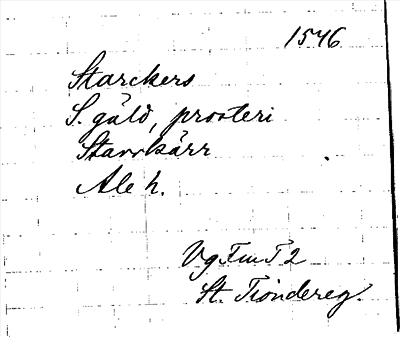 1546
Starckers
S. gäld, prosteri
Starrkärr
Ale h.
Vg Fm T 2
St. Tiondereg.